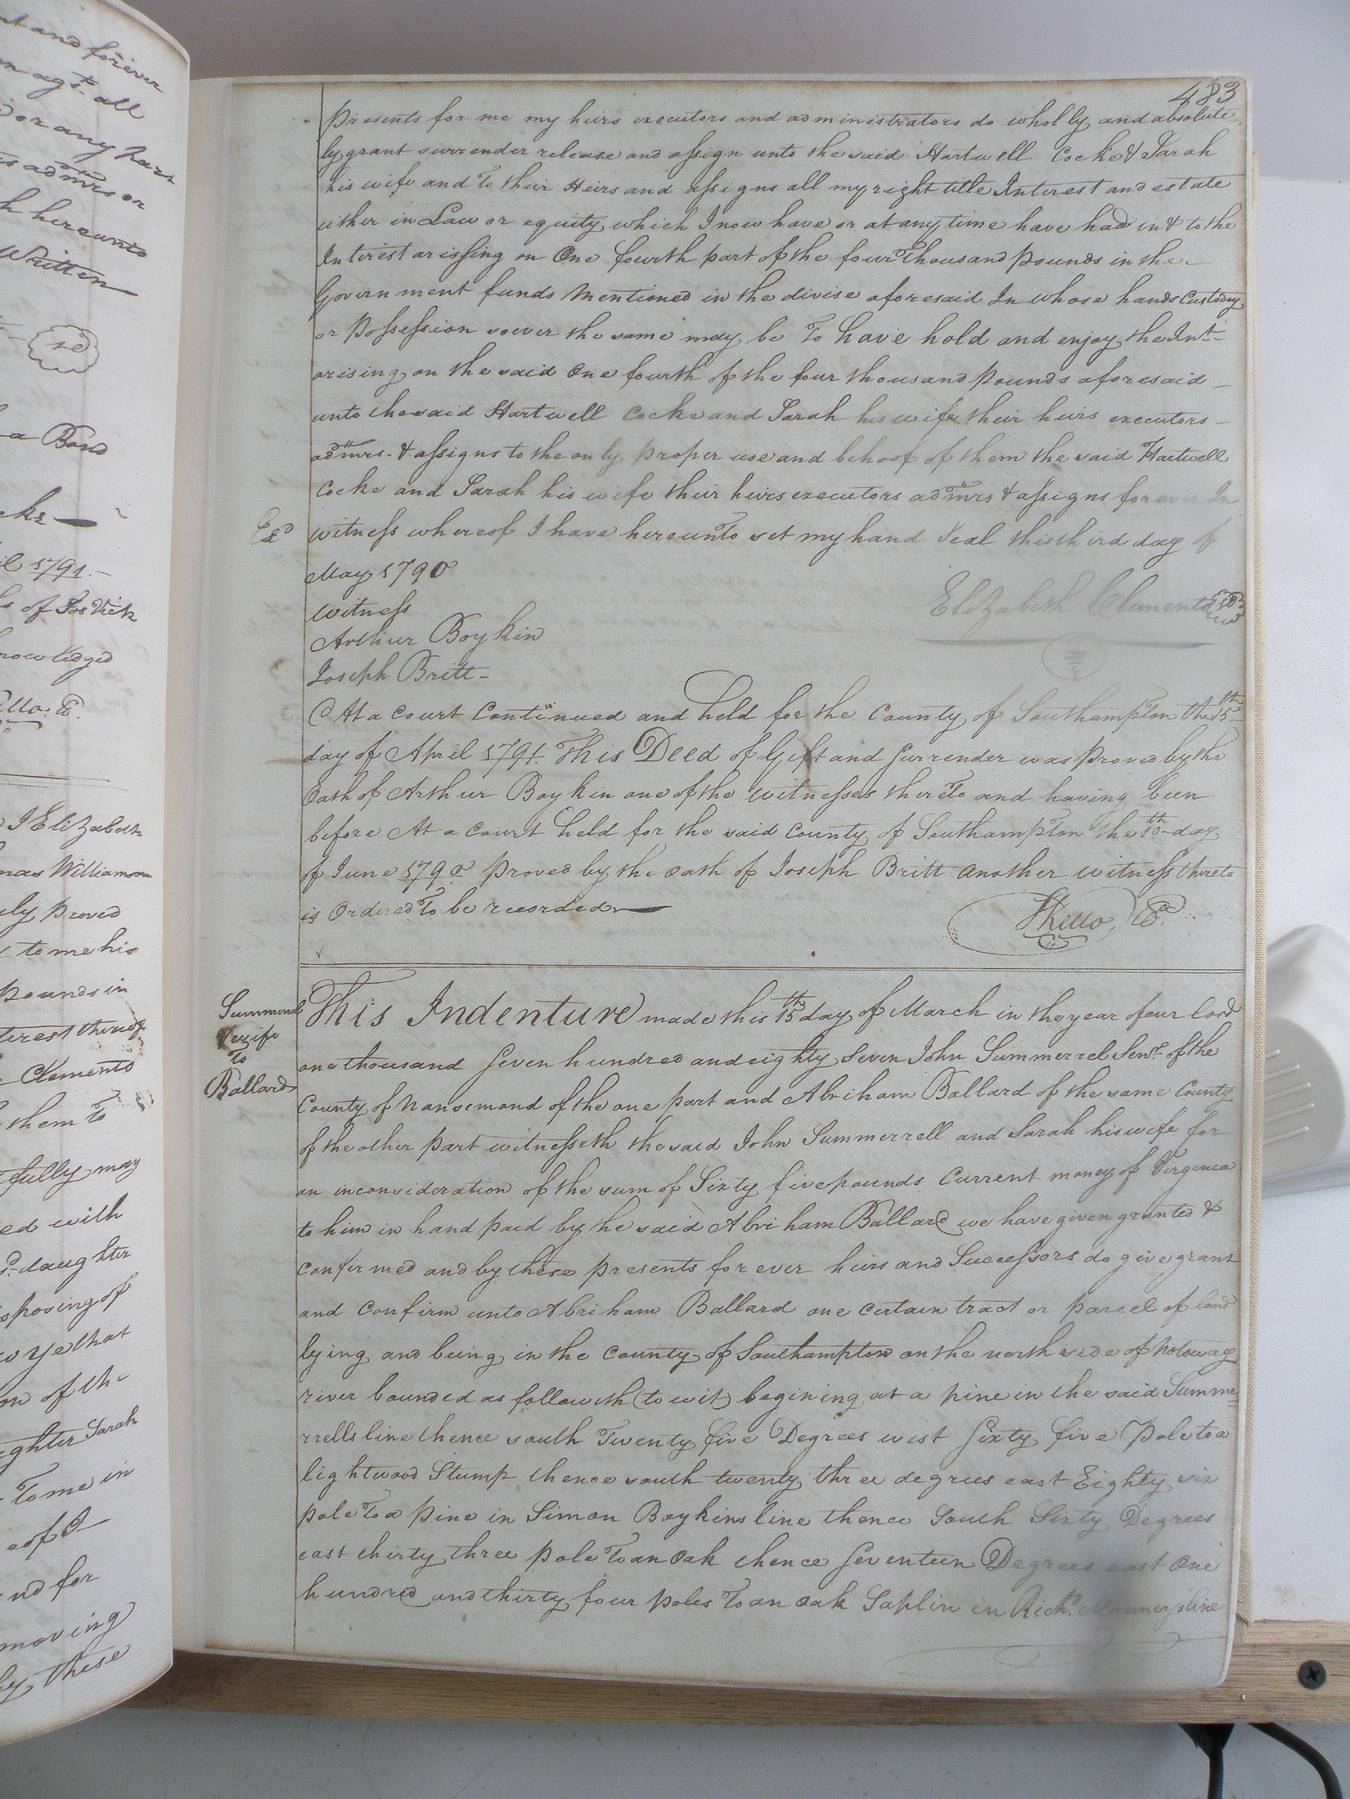 nt and forever
n agst. all
d or any hart
s admrs or
h hereunto
Written
a Band
cks
il 1791.
s of Jos Vick
nowledged
ello. Cl.
I Elizabeth
mas Williamson
uly proved
to me his
pounds in
terest thereof
Clements
them To
fully may
ed with
sd. daughter
sposing of
ye that
on of the
ghter Sarah
To me in
e of I
nd for
moving
by these
483
presents for me my heirs executors and administrators do wholly and absolute
ly grant surrender release and assign unto the said Hartwell Cocke & Sarah
his wife and to their Heirs and assigns all my right title Interest and estate
either in Law or equity which I now have or at any time have had in & to the
Interest arissing on One fourth part of the four Thousand pounds in the
Government funds Mentioned in the divise aforesaid In whose hands Custody
or Possession soever the same may be To have hold and enjoy the Int.
arising on the said One fourth of the four thousand pounds aforesaid
unto the said Hartwell Cocke and Sarah his wife their heirs executors
admrs. & assigns to the only proper use and behoof of them the said Hartwell
Cocke and Sarah his wife their heirs executors admrs & assigns forever In
Exd
witness whereof I have hereunto set my hand & Seal this third day of
May 1790
Elizabeth Clements
witness
Arthur Boykin
Joseph Britt
At a Court Continued and held for the County of Southampton the 15th
day of April 1791. This Deed of Gift and Surrender was proved by the
Oath of Arthur Boykin one of the witnesses thereto and having been
before At a Court held for the said County of Southampton the 10th day
of June 1790 proved by the oath of Joseph Britt another witness thereto
is Ordered To be recorded
SKello. Cl.
Summerell
& wife
to
Ballard
This Indenture made this 15th day of March in the year of our lord
one thousand Seven hundred and eighty Seven John Summerrel Senr. of the
County of Nansemond of the one part and Abriham Ballard of the same County
of the other part witnesseth the said John Summerrell and Sarah his wife for
an inconsideration of the sum of Sixty five pounds Current money of Virgenia
to him in hand paid by the said Abriham Ballard we have given granted &
confirmed and by these presents for ever heirs and Successors do give grant
and confirm unto Abriham Ballard one certain tract or parcel of land
lying and being in the County of Southampton on the north side of Notoway
river bounded as followeth (to wit) begining at a pine in the said Summe=
rrells line thence south Twenty five Degrees west Sixty five Pole to a
lightwood Stump thence south twenty three degrees east Eighty six
pole To a pine in Simon Boykins line thence South Sixty Degrees
east thirty three pole To an Oak thence Seventeen Degrees east One
hundred and thirty four poles To an oak Saplin in Richd. line